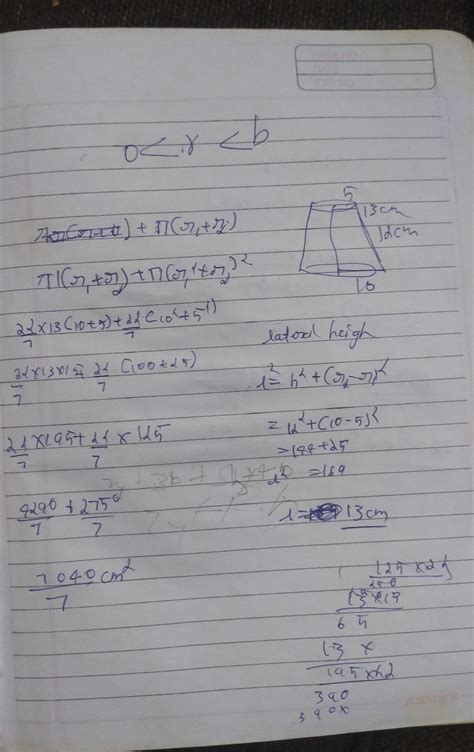 0 < r < b
+ π(r₁+r₂)
πl(r₁+r₂)+π(r₁²+r₂)²
22/7 ×13(10+5)+22/7(10²+5²)
22/7 ×13×15+22/7 (100+25)
22/7 ×195+22/7 ×125
4290/7 + 2750/7
7040/7 cm²
5
13cm
12cm
10
latoral heigh
l²=h²+(r₁-r₂)²
=12²+(10-5)²
=144+25
=169
l= 13cm
125×22
250
13×15
65
13×
195×22
390
390×